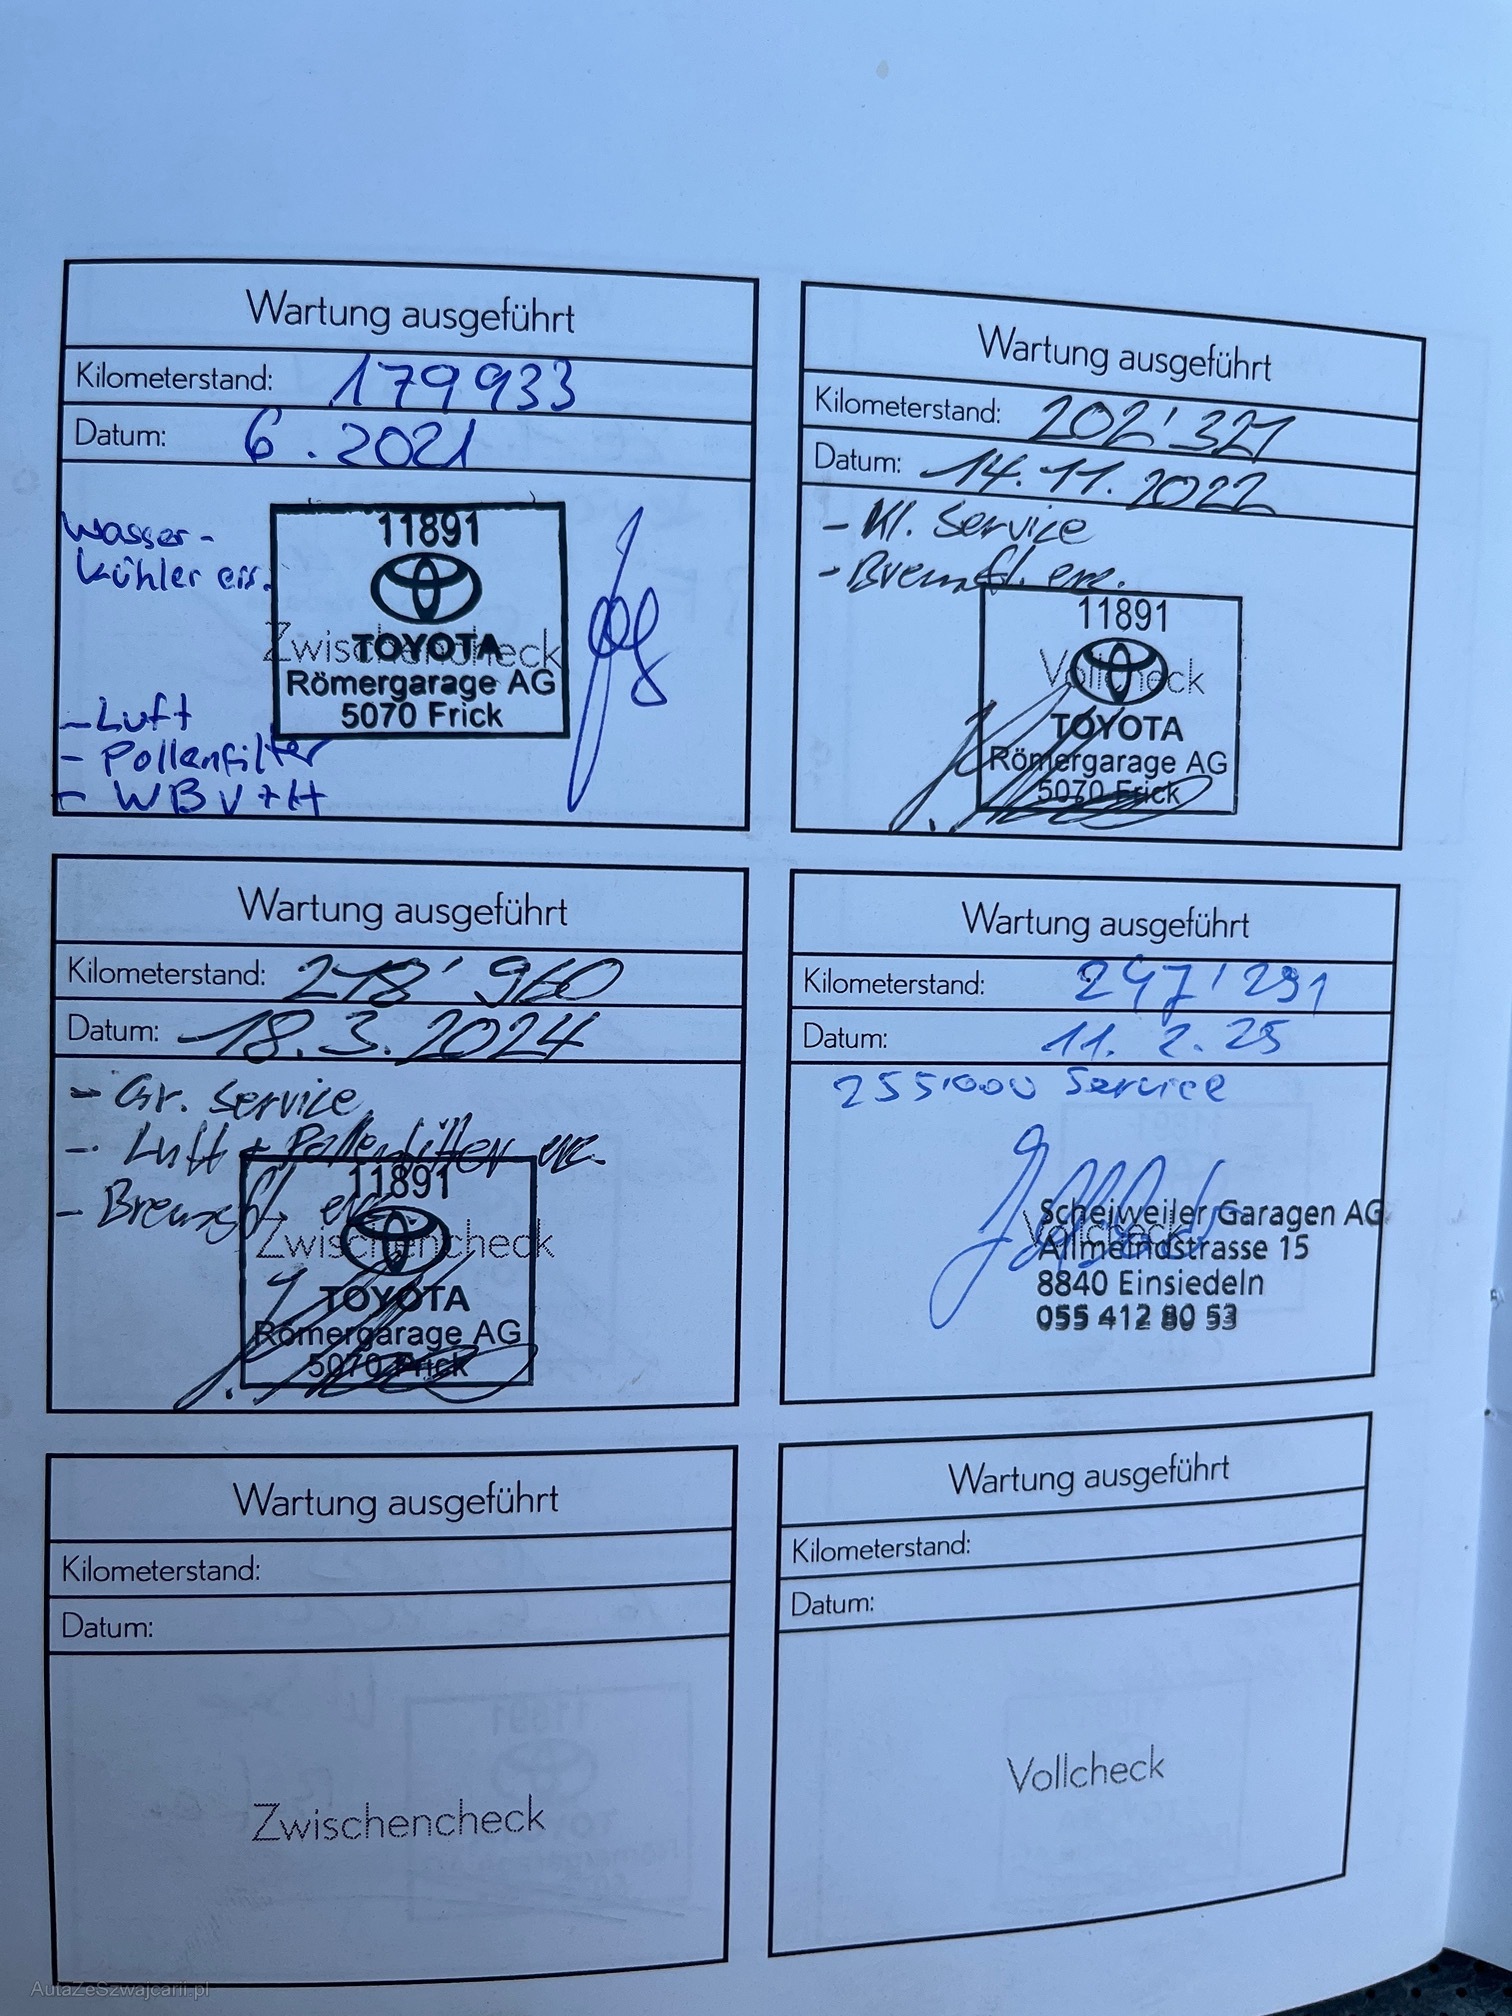 Wartung ausgeführt
Kilometerstand: 179933
Datum: 6.2021
Wasser-
kühler ers.
11891
Zwischencheck
TOYOTA
Römergarage AG
5070 Frick
- Luft
- Pollenfilter
- WBV+H
Wartung ausgeführt
Kilometerstand: 202'321
Datum: 14.11.2022
- Kl. Service
- Bremsfl. erc.
11891
Vollcheck
TOYOTA
Römergarage AG
5070 Frick
Wartung ausgeführt
Kilometerstand: 218'960
Datum: 18.3.2024
- Gr. Service
- Luft + Pollenfilter erc.
- Bremsfl. erc.
11891
Zwischencheck
TOYOTA
Römergarage AG
5070 Frick
Wartung ausgeführt
Kilometerstand: 247'291
Datum: 11.2.25
255'000 Service
Vollcheck
Scheiweiler Garagen AG
Allmeindstrasse 15
8840 Einsiedeln
055 412 80 53
Wartung ausgeführt
Kilometerstand:
Datum:
Zwischencheck
Wartung ausgeführt
Kilometerstand:
Datum:
Vollcheck
AutaZeSzwajcarii.pl